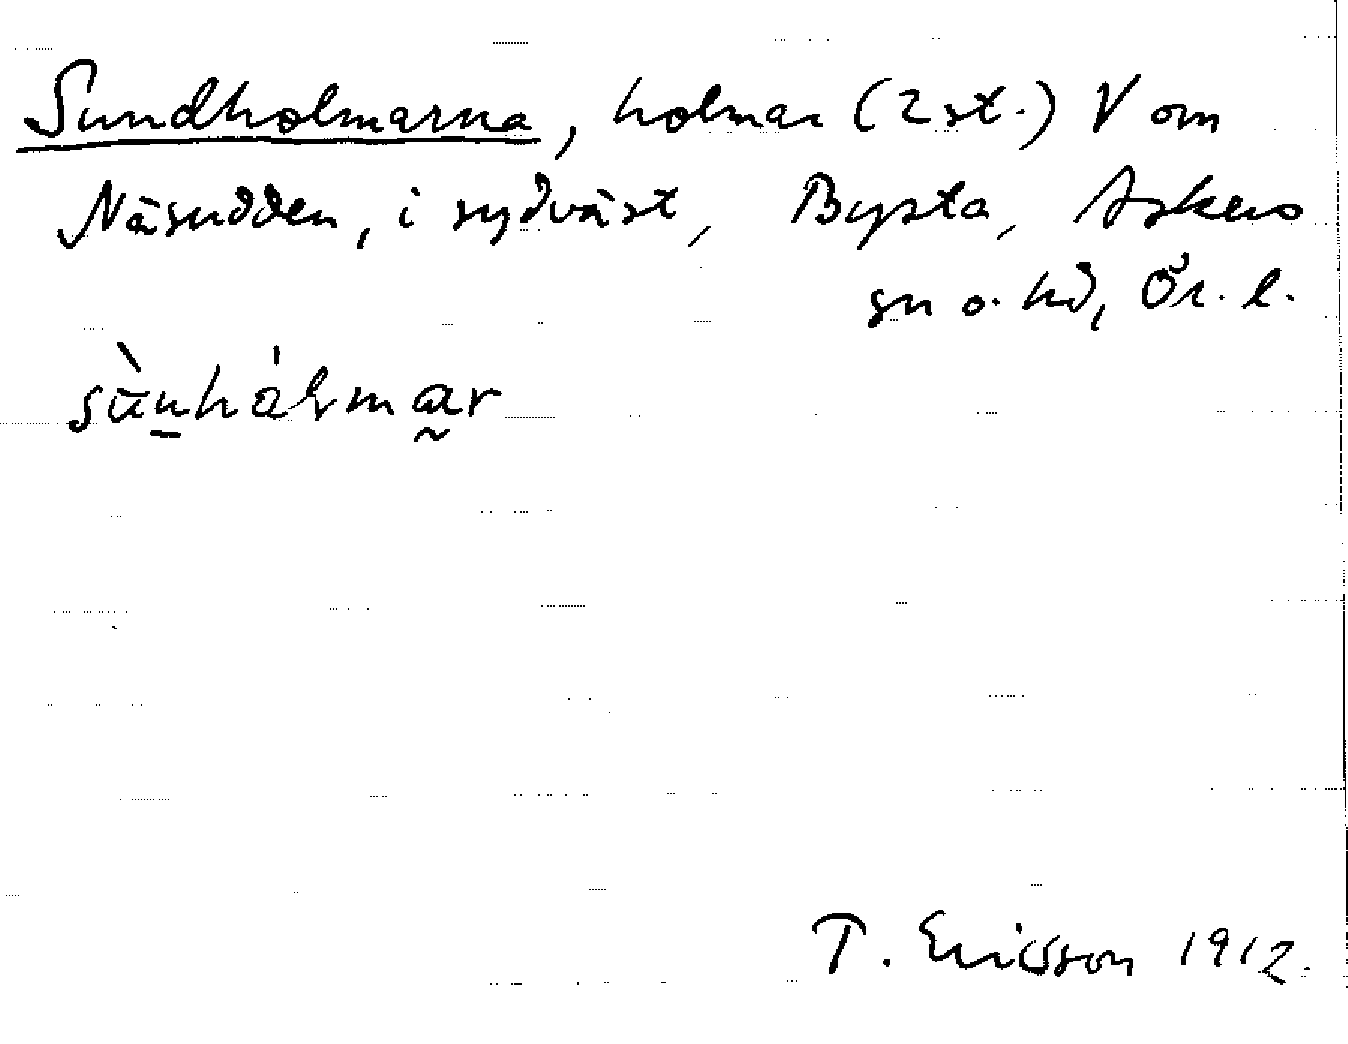 Sundholmarna, holmar (2 st.) V om
Näsudden, i sydväst, Bysta, Askers
sn o. hd, Ör. l.
sùnhálmar
T. Ericsson 1912.